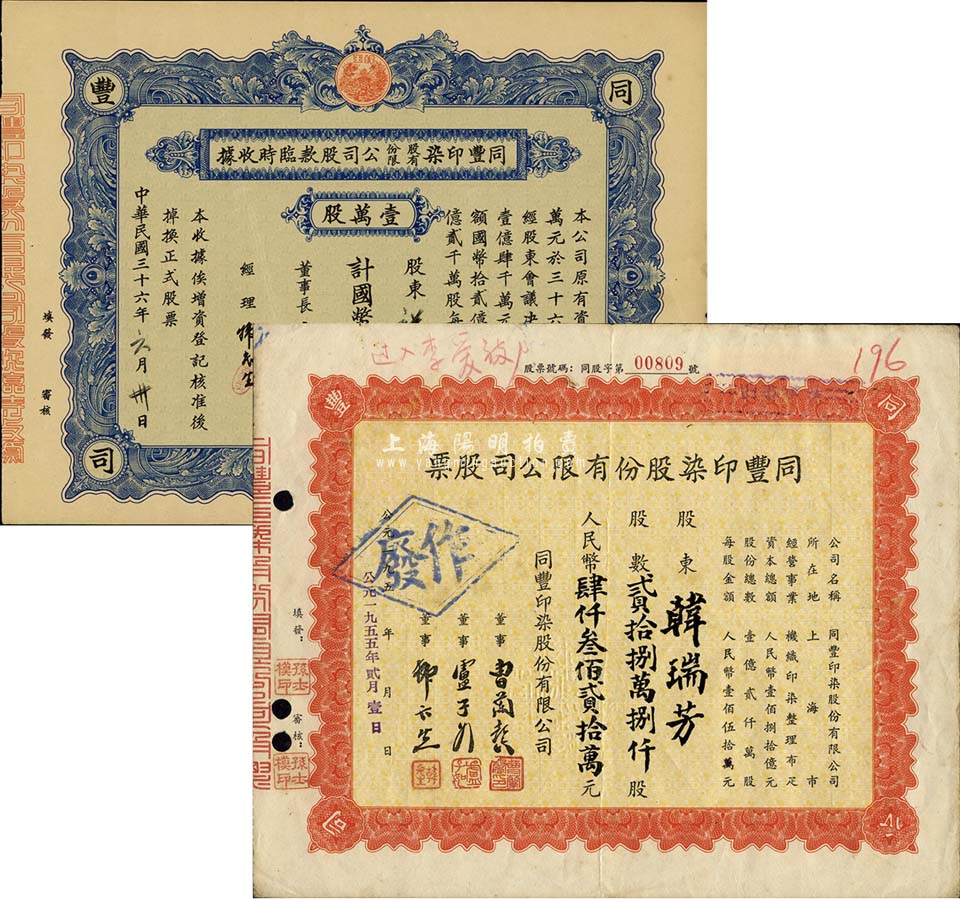 同
豐
司
同豐印染股份有限公司股款臨時收據
壹萬股
本公司原有資
萬元於三十六
經股東會議決
壹億肆千萬元
額國幣拾貳億
億貳千萬股每
股東
計國幣
董事長
經理
本收據俟增資登記核准後
掉換正式股票
中華民國三十六年六月卅日
填發
審核
过入李
196
股票號碼：同股字第 00809 號
同
豐
公
司
同豐印染股份有限公司股票
公司名稱 同豐印染股份有限公司
所在地 上海市
經營事業 機織印染整理布疋
資本總額 人民幣壹佰捌拾億元
股份總數 壹億貳仟萬股
每股金額 人民幣壹佰伍拾萬元
股東 韓瑞芳
股數 貳拾捌萬捌仟 股
人民幣肆仟叁佰貳拾萬元
同豐印染股份有限公司
董事
董事
董事
公元一九五 年 月 日
公元一九五五年貳月壹日
作廢
填發：
孫士模印
審核：
孫士模印
上海陽明拍賣